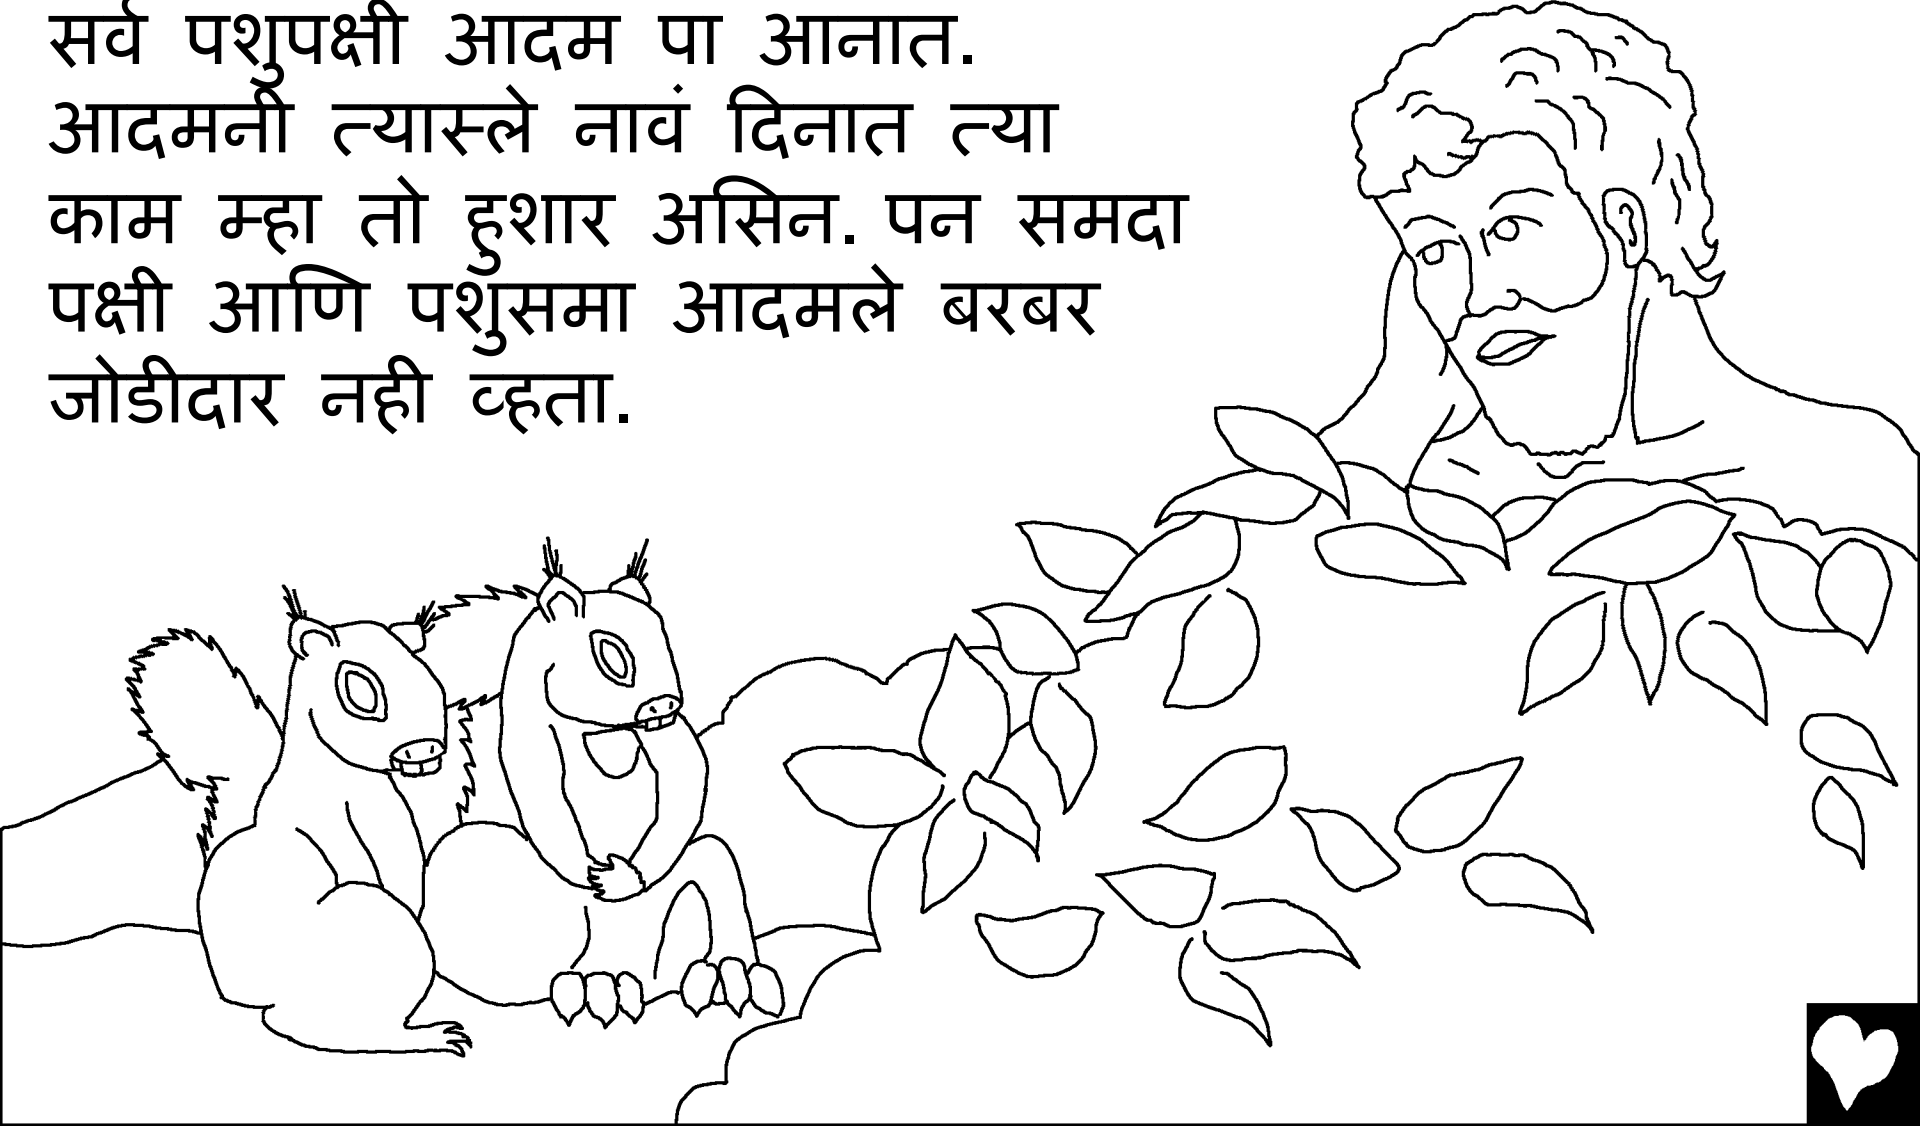 सर्व पशुपक्षी आदम पा आनात.
आदमनी त्यास्ले नावं दिनात त्या
काम म्हा तो हुशार असिन. पन समदा
पक्षी आणि पशुसमा आदमले बरबर
जोडीदार नही व्हता.